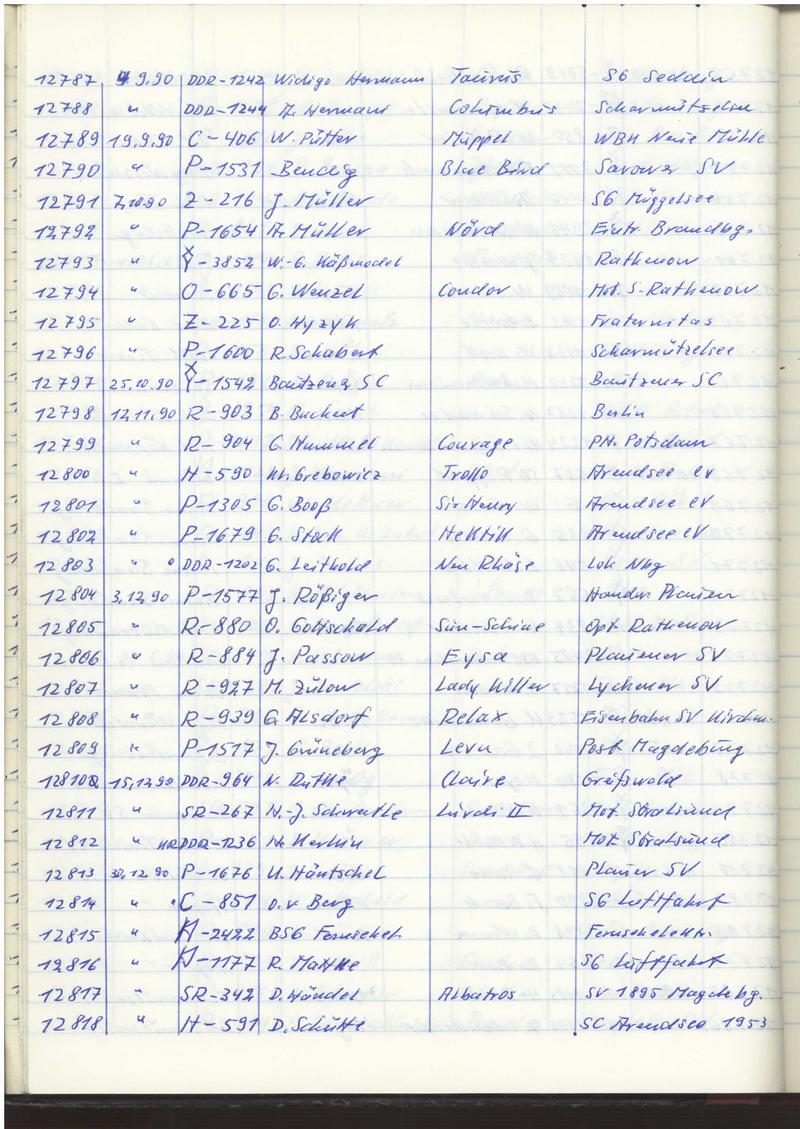 12787 9.9.90 DDR-1242 Widigo Hermann Taurus SG Seddin
12788 " DDR-1244 A. Hermann Columbus Scharmützelsee
12789 19.9.90 C-406 W. Pütter Müppel WBH Neue Mühle
12790 " P-1531 Bendig Blue Bird Saarower SV
12791 7.10.90 Z-216 J. Müller SG Müggelsee
12792 " P-1654 A. Müller Nörd Eintr. Brandbg.
12793 " Y-3852 W.-G. Käßmodel Rathenow
12794 " O-665 G. Wenzel Condor Mot. S-Rathenow
12795 " Z-225 O. Hyzyk Fraternitas
12796 " P-1600 R. Schabert Scharmützelsee
12797 25.10.90 Y-1542 Bautzener SC Bautzener SC
12798 12.11.90 R-903 B. Buchert Berlin
12799 " R-904 G. Hummel Courage PH. Potsdam
12800 " H-590 Kh. Grebowicz Trollo Arendsee eV
12801 " P-1305 G. Booß Sir Henry Arendsee eV
12802 " P-1679 G. Stock Hektik Arendsee eV
12803 " DDR-1202 G. Leithold Neu Rhäse Lok Nbg
12804 3.12.90 P-1577 J. Rößiger Handw. Plauen
12805 " R-880 O. Gottschald Sun-Schine Opt. Rathenow
12806 " R-884 J. Passow Eysa Plauener SV
12807 " R-927 M. Zülow Lady Killer Lychener SV
12808 " R-939 G. Alsdorf Relax Eisenbahn SV Kirchm.
12809 " P-1517 J. Grüneberg Levu Post Magdeburg
12810 15.12.90 DDR-964 N. Rutke Claire Greifswald
12811 " SR-267 H.-J. Schwatke Lürdi II Mot Stralsund
12812 " DDR-1236 H. Kerlin Mot Stralsund
12813 30.12.90 P-1676 U. Häntschel Plauer SV
12814 " C-851 O. v Berg SG Luftfahrt
12815 " H-2422 BSG Fernsehel. Fernsehelektr.
12816 " H-1177 R. Mattke SG Luftfahrt
12817 " SR-342 D. Händel Albatros SV 1895 Magdebg.
12818 " H-591 D. Schütte SC Arendsee 1953